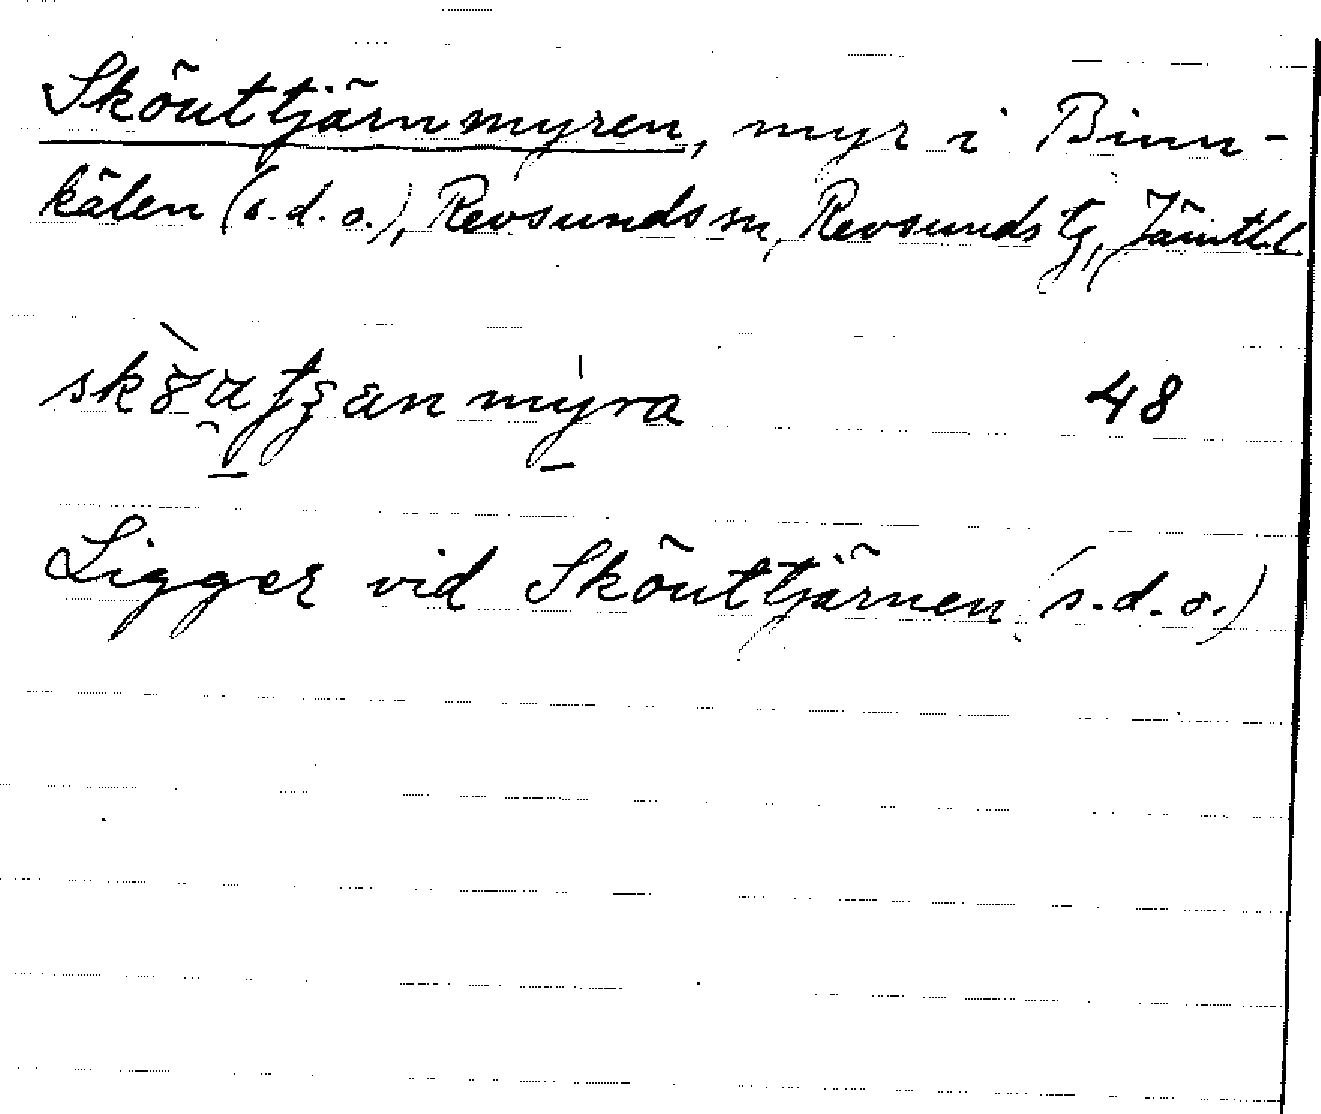 Sköuttjärnmyren, myr i Binn-
kälen (s.d.o.), Revsunds sn, Revsunds tg, Jämtl.l.
48
Ligger vid Sköuttjärnen (s.d.o.)